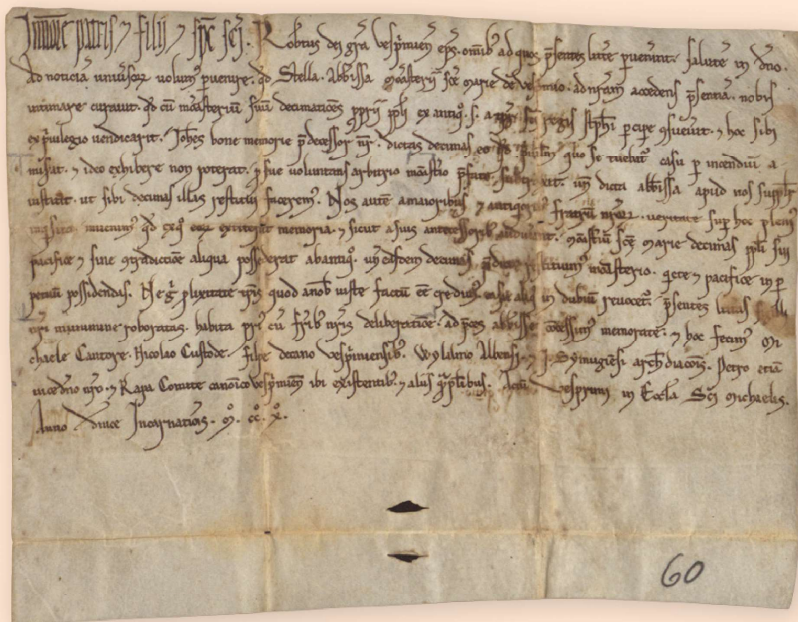 In noie patris ⁊ filii ⁊ sps sci. Robtus dei gra vesprimien eps. omib ad quos psentes littere puenerint. salute in dno.
Ad noticia universor volum puenire. qd Stella. Abbissa mosterii sce marie de vesprimio. ad nram accedens psentia. nobis
intimare curavit. qd cu mosterium suu decimationes pprii ppli ex antiquo. s. a tpr sci regis stephi percipe gsueverit. ⁊ hoc sibi
ex privilegio vendicarit. Johes bone memorie pdecessor nr. dictas decimas eo qd privilegiu quo se tuebat casu p incendiu a
miserat. ⁊ ideo exhibere non poterat. p sue voluntatis arbitrio mostio pfato subtraxit. un dicta abbissa apud nos supplr
institit. ut sibi decimas illas restitui faceremus. Nos aute a maioribus ⁊ antiquiorib fratru nror. veritate sup hoc plenius
inquisita invenimus qd ex quo eor extiterat memoria. ⁊ sicut a suis antecessorib audierat. mostium sce marie decimas ppli sui
pacifice ⁊ sine gtradictione aliqua possederat ab antiquo. un easdem decimas pdicto restituimus mosterio. quiete ⁊ pacifice in per
petuum possidendas. Ne g plixitate tpris quod a nob iuste factu est credimus ab aliis in dubiu revocet. psentes litteras sigilli
nri munimine roboratas. habita pri cu frib nris deliberatione. ad pces abbisse gcessimus memorate. ⁊ hoc fecimus Mi
chaele Cantore. Nicolao Custode. filpe decano vesprimiensib. Wylelmo Albensi. ⁊ J. Symigiesi archidiacois. Petro etia
vicedno nro. ⁊ Rapa Comite canonico vesprimien ibi existentib. ⁊ aliis qplibus. Actu vesprimii in Eccla Sci michaelis.
Anno dnice Incarnatiois. M. CC. X.
60